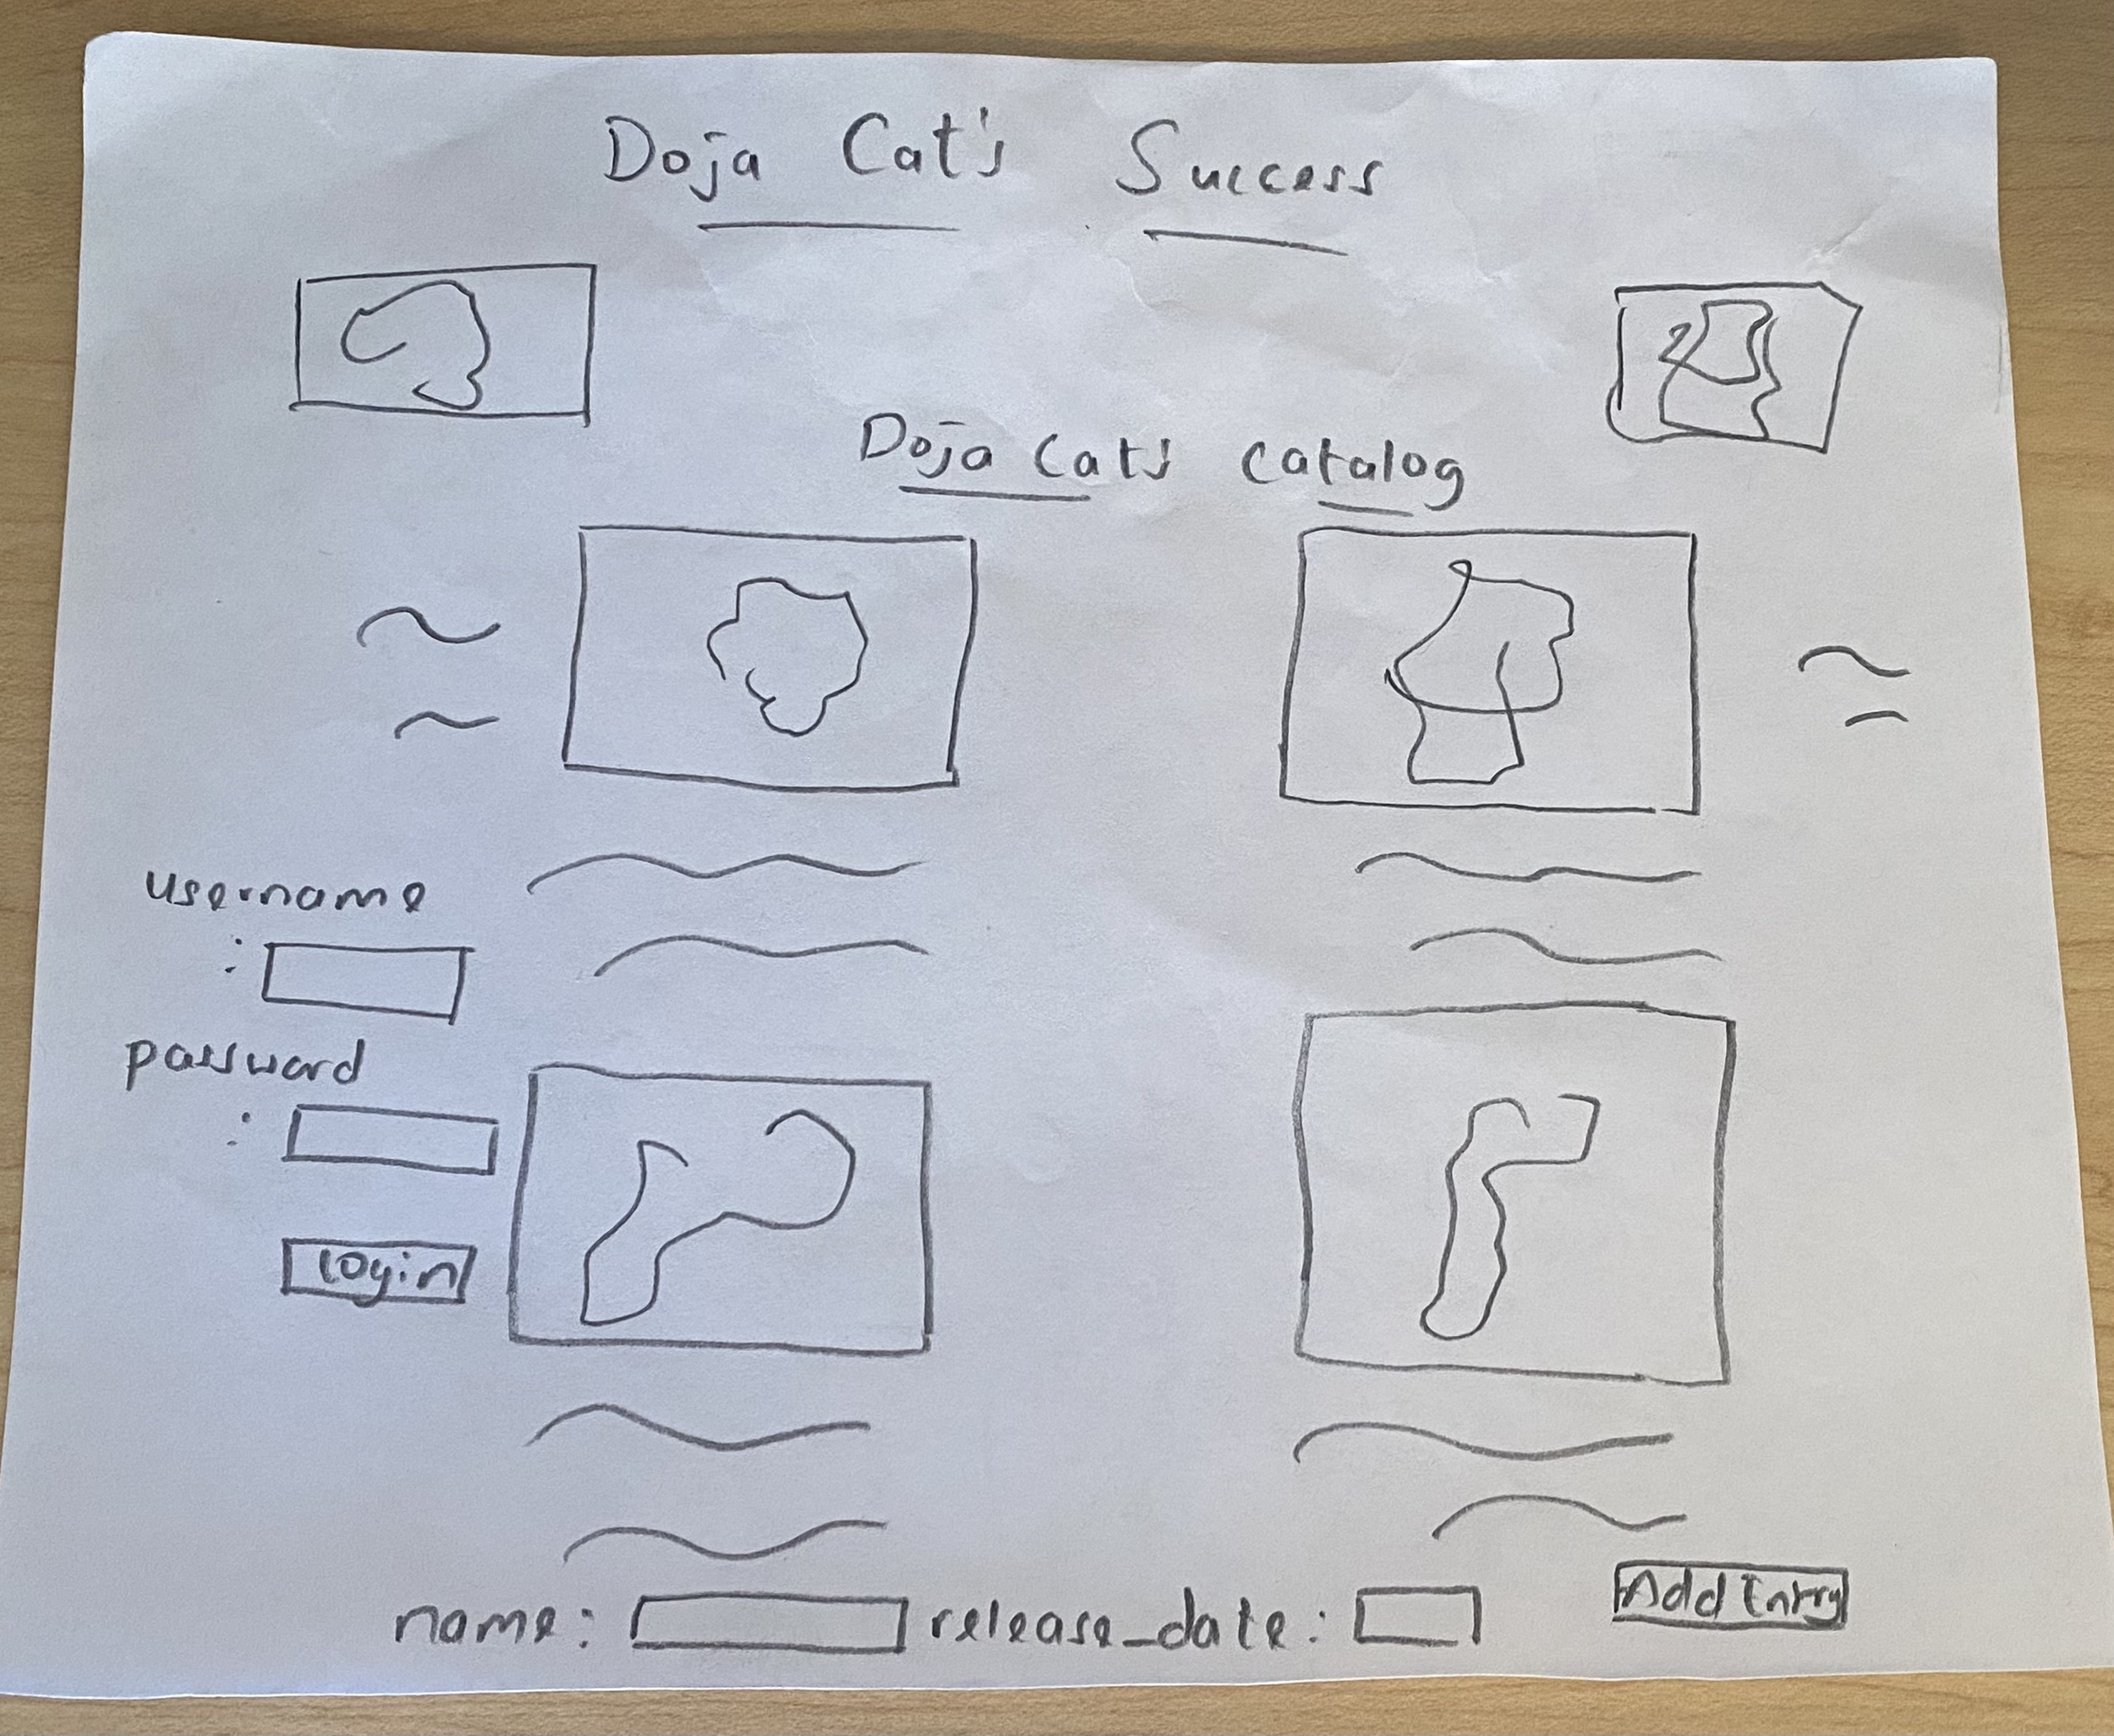 Doja Cat's Success
Doja Cat's catalog
username
:
password
:
login
name: release_date: Add Entry